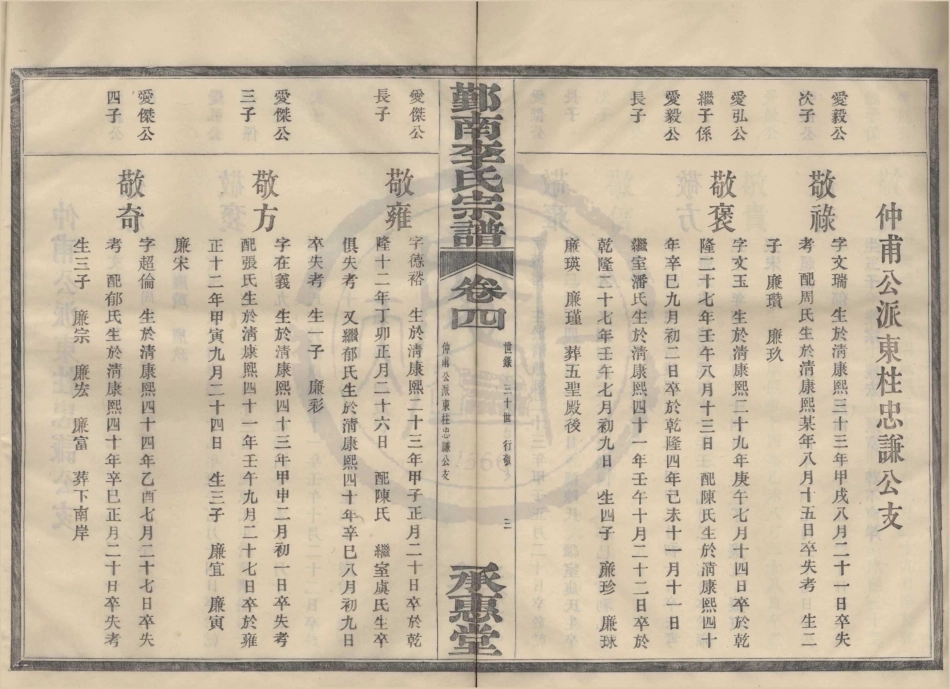 仲甫公派東柱忠謙公支
愛毅公
次子
敬祿
字文瑞　生於清康熙三十三年甲戌八月二十一日卒失
考　配周氏生於清康熙某年八月十五日卒失考　生二
子　廉瓚　廉玖
愛弘公
繼子係
愛毅公
長子
敬褒
字文玉　生於清康熙二十九年庚午七月十四日卒於乾
隆二十七年壬午八月十三日　配陳氏生於清康熙四十
年辛巳九月初二日卒於乾隆四年己未十一月十一日
繼室潘氏生於清康熙四十一年壬午十月二十二日卒於
乾隆二十七年壬午七月初九日　生四子　廉珍　廉球
廉瑛　廉瑾　葬五聖殿後
鄞南李氏宗譜
卷四
世錄　三十世　行敬　三
仲甫公派東柱忠謙公支
承惠堂
愛傑公
長子
敬雍
字德裕　生於清康熙二十三年甲子正月二十日卒於乾
隆十二年丁卯正月二十六日　配陳氏　繼室虞氏生卒
俱失考　又繼郁氏生於清康熙四十年辛巳八月初九日
卒失考　生一子　廉彩
愛傑公
三子
敬方
字在義　生於清康熙四十三年甲申二月初一日卒失考
配張氏生於清康熙四十一年壬午九月二十七日卒於雍
正十二年甲寅九月二十四日　生三子　廉宜　廉寅
廉宋
愛傑公
四子
敬奇
字超倫　生於清康熙四十四年乙酉七月二十七日卒失
考　配郁氏生於清康熙四十年辛巳正月二十日卒失考
生三子　廉宗　廉宏　廉富　葬下南岸